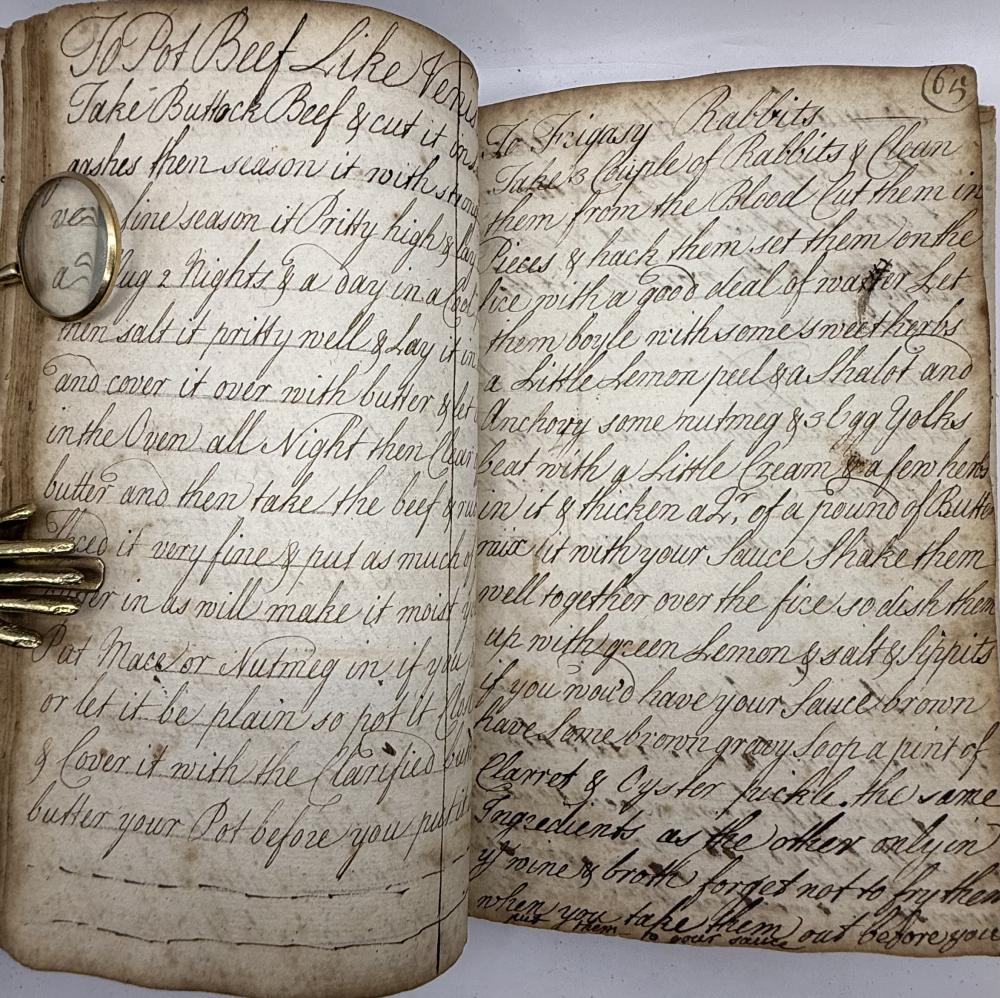 To Pot Beef Like
Take Buttock Beef & cut it in
gashes then season it with
fine season it Pritty high & lay
2 Nights & a day in a
then salt it pritty well & Lay it in
and cover it over with butter & let
in the Oven all Night then Clear
butter and then take the beef &
it very fine & put as much of
in as will make it moist
Put Mace or Nutmeg in if you
or let it be plain so pot it
& Cover it with the Clarified
butter your Pot before you put it
65
To Frigasy Rabbits
Take 3 Couple of Rabbits & Clean
them from the Blood Cut them in
Pieces & hack them set them on the
fire with a good deal of watter Let
them boyle with some sweet herbs
a Little Lemon peel & a Shalot and
Anchovy some nutmeg & 3 Egg Yolks
beat with a Little Cream & a few herbs
in it & thicken a Qr. of a pound of
mix it with your Sauce Shake them
well together over the fire so dish them
up with green Lemon & salt & Sippits
if you wou'd have your Sauce brown
have some brown gravy Soop a pint of
Clarret & Oyster pickle the same
Ingredients as the other only in
yr wine & broth forget not to fry them
when you take them out before you
put them to your sauce